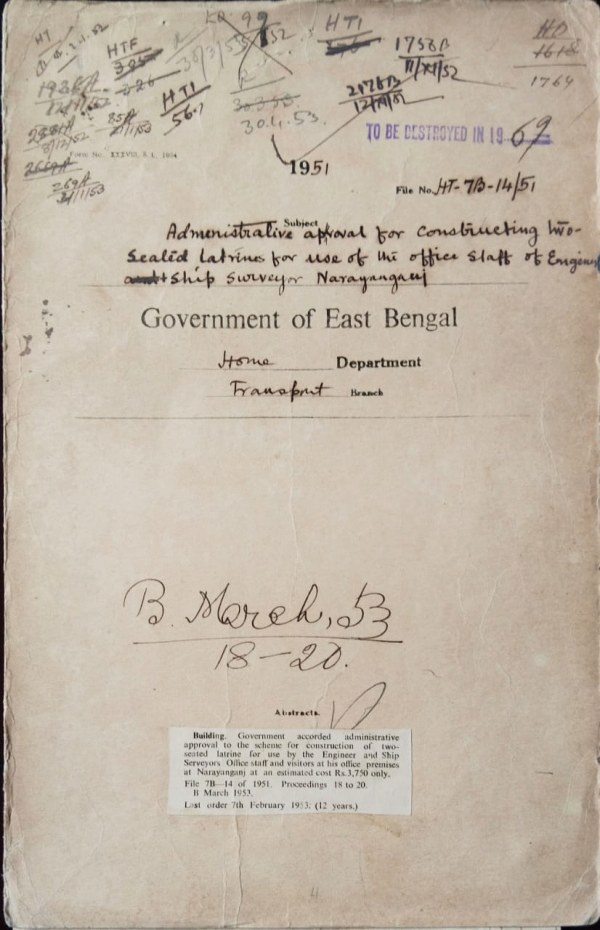 HT
HTF
HTI
1758B
11/XI/52
1618
1764
1936A
HTI
567
2178B
30.4.53.
TO BE DESTROYED IN 1969
85A
269A
Form No. XXXVIII, S. I., 1904
1951
File No. HT-7B-14/51
Subject
Administrative aproval for constructing two-
Seated Latrines for use of the office staff of Engineer
and Ship Surveyor Narayanganj
Government of East Bengal
Home Department
Transport Branch
B. March, 53
18-20.
Abstracts.
Building. Government accorded administrative
approval to the scheme for construction of two-
seated latrine for use by the Engineer and Ship
Serveyors Office staff and visitors at his office premises
at Narayanganj at an estimated cost Rs.3,750 only.
File 7B—14 of 1951. Proceedings 18 to 20.
B March 1953.
Last order 7th February 1953: (12 years.)